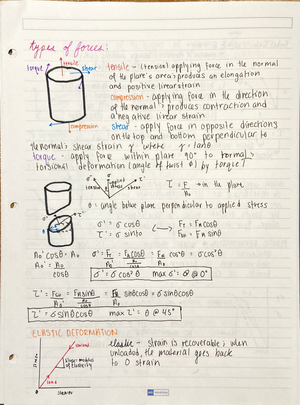 types of forces:
tensile - (tension) applying force in the normal
of the plane's area; produces an elongation
and positive linear strain
compression - applying force in the direction
of the normal; produces contraction and
a negative linear strain
shear - apply force in opposite directions
on the top and bottom perpendicular to
the normal; shear strain γ where γ = tanθ
torque - apply force within plane 90° to normal;
torsional deformation (angle of twist φ) by torque
tensile
torque
shear
compression
σ'
τ'
applied stress
shear
τ = F/A₀ → in the plane
θ = angle btwn plane perpendicular to applied stress
σ' = σ cosθ
τ' = σ sinθ
A₀' cosθ = A₀
A₀' = A₀/cosθ
σ' = σ cos² θ max σ': θ @ 0°
= sinθcosθ = σ sinθcosθ
τ' = σ sinθcosθ max τ': θ @ 45°
ELASTIC DEFORMATION
elastic - strain is recoverable; when
unloaded, the material goes back
to 0 strain
slope: modulus
of elasticity
load
stress
strain